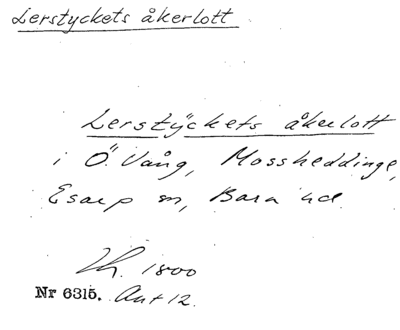 Lerstyckets åkerlott
Lerstÿckets åkerlott
i Ö. Vång, Mossheddinge,
Esarp sn, Bara hd.
Lh. 1800
Nr 6315. Akt 12.